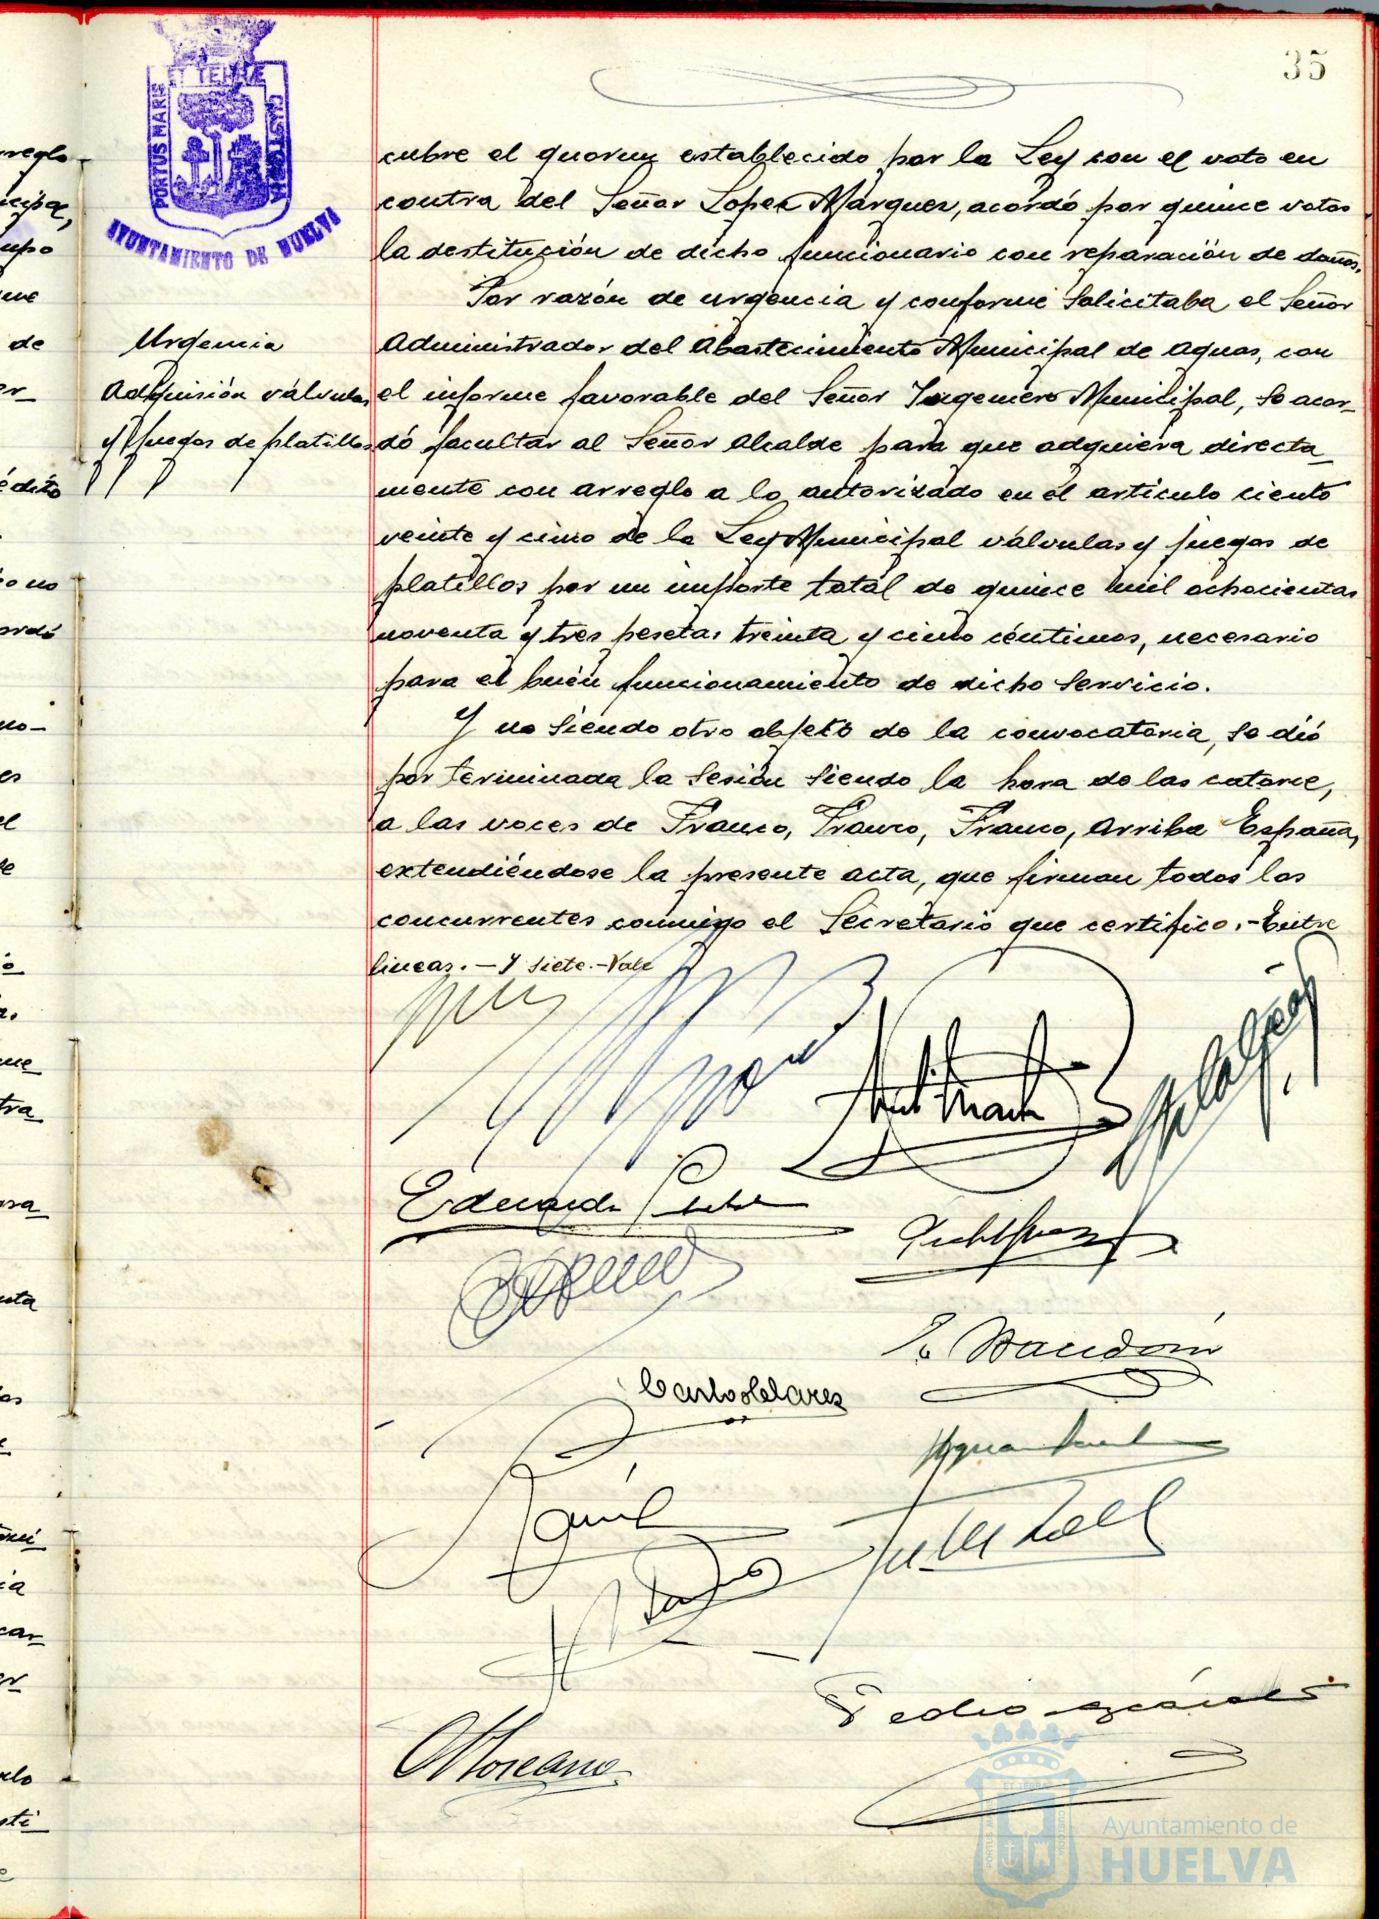 35
ET TERRÆ
PORTUS MARIS
CUSTODIA
AYUNTAMIENTO DE HUELVA
cubre el quorum establecido por la Ley con el voto en
contra del Señor Lopez Márquez, acordó por quince votos
la destitución de dicho funcionario con reparación de daños.
Por razón de urgencia y conforme solicitaba el Señor
Urgencia
Administrador del Abastecimiento Municipal de Aguas, con
Adquisión válvulas
el informe favorable del Señor Ingeniero Municipal, se acor-
y juegos de platillos
dó facultar al Señor Alcalde para que adquiera directa-
mente con arreglo a lo autorizado en el artículo ciento
veinte y cinco de la Ley Municipal válvulas y juegos de
platillos por un importe total de quince mil ochocientas
noventa y tres pesetas treinta y cinco céntimos, necesario
para el buen funcionamiento de dicho Servicio.
Y no siendo otro objeto de la convocatoria, se dió
por terminada la Sesión siendo la hora de las catorce,
a las voces de Franco, Franco, Franco, Arriba España,
extendiéndose la presente acta, que firman todos los
concurrentes conmigo el Secretario que certifico.-Entre
lineas.-Y siete.-Vale
Eduardo
Pedro
Ayuntamiento de
HUELVA